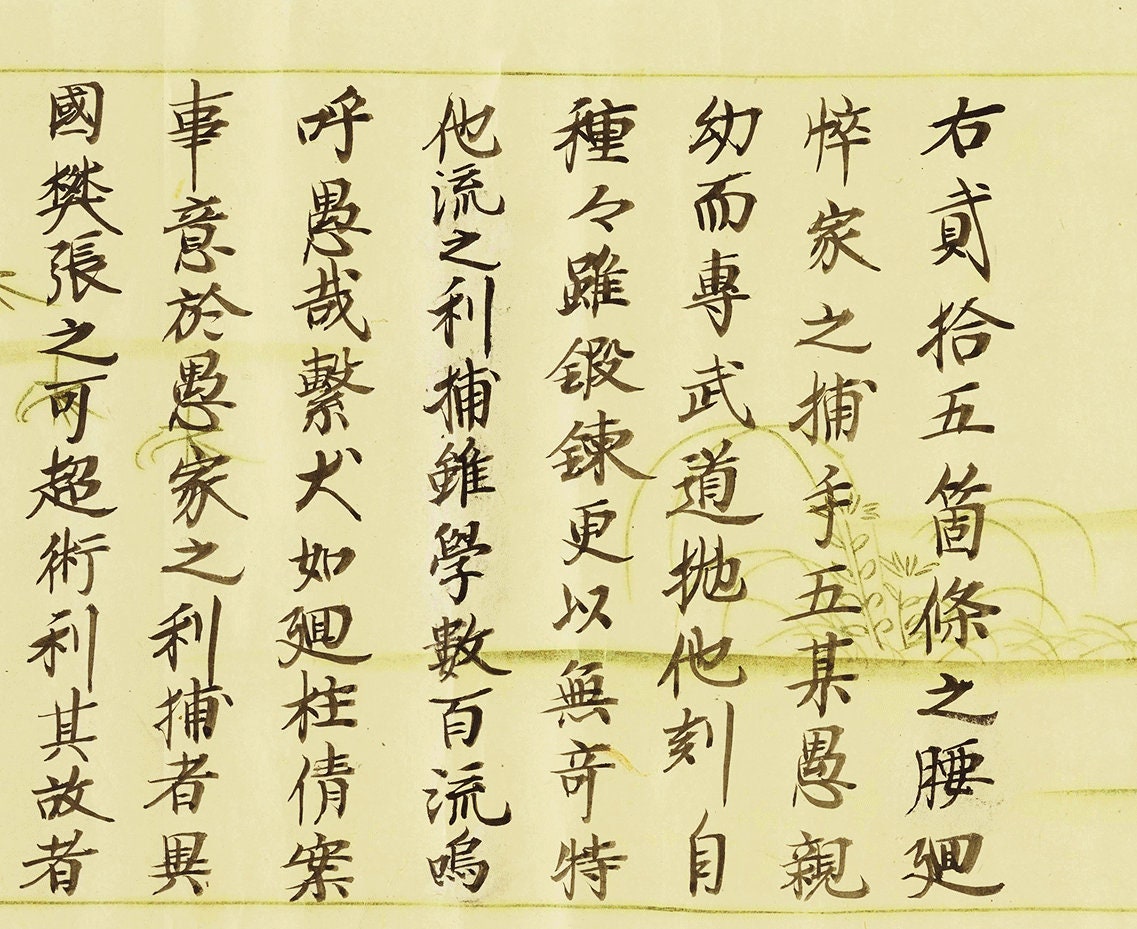 右貳拾五箇條之腰廻
悴家之捕手五某愚親
幼而專武道抛他刻自
種々雖鍛鍊更以無竒特
他流之利捕雖學數百流嗚
呼愚哉繫犬如廻柱倩案
事意於愚家之利捕者異
國樊張之可超術利其故者